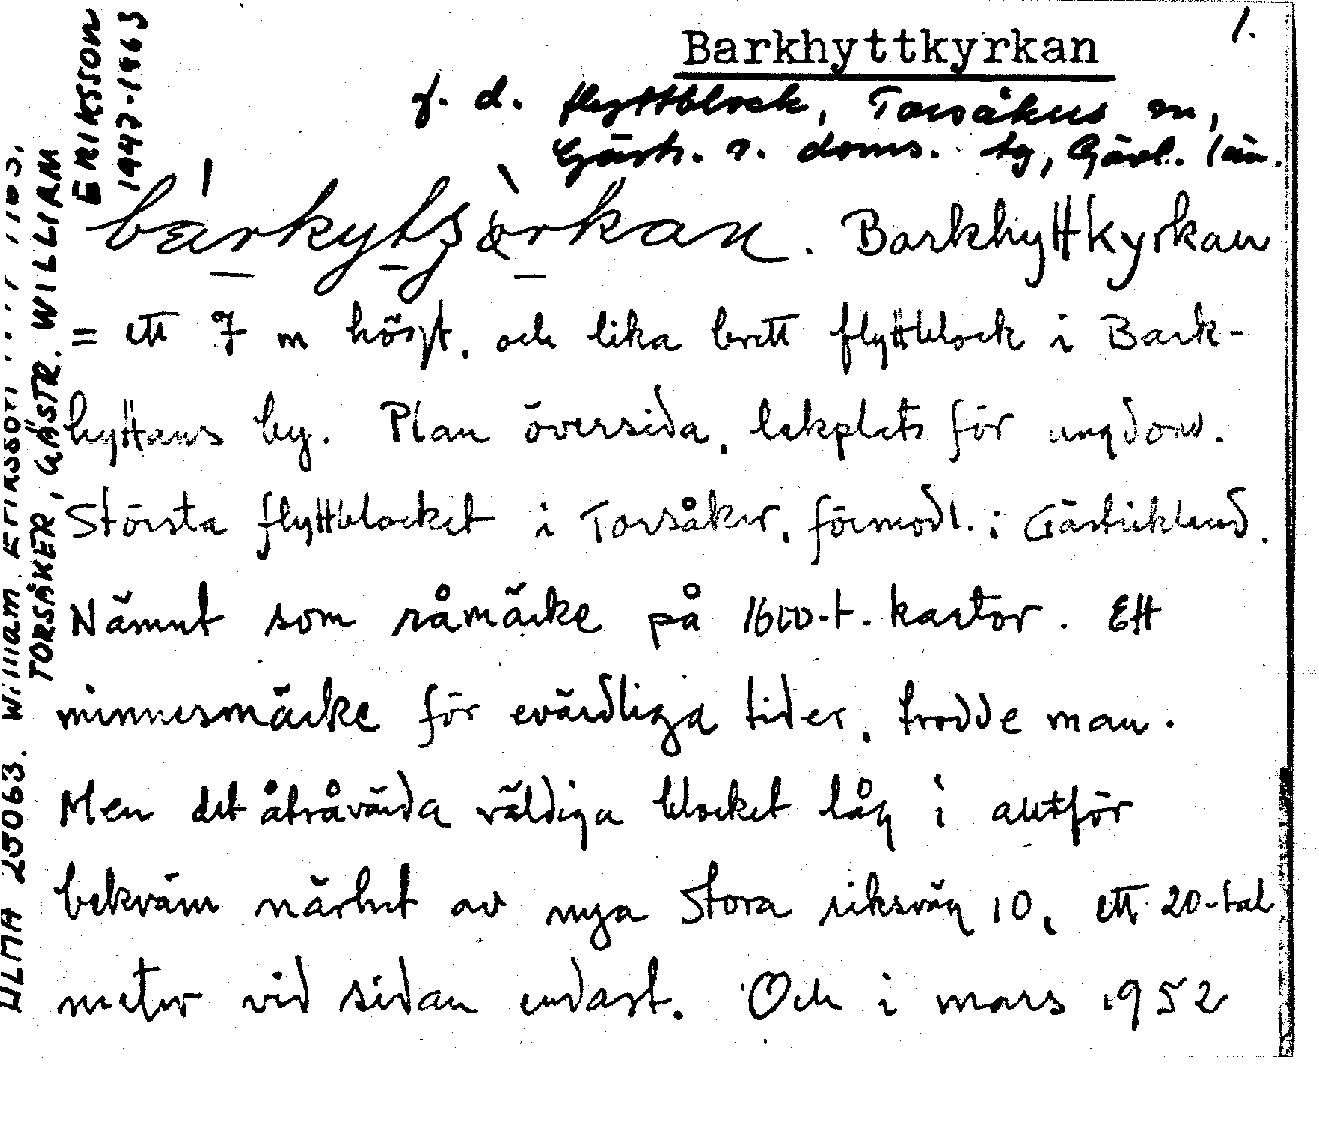 1.
Barkhyttkyrkan
f. d. flyttblock, Torsåkers sn,
Gästr. ö. doms. tg, Gävl. län.
bárkytjs̀ørkan. Barkhyttkyrkan
= ett 7 m högt, och lika brett flyttblock i Bark-
hyttans by. Plan översida, lekplats för ungdom.
Största flyttblocket i Torsåker, förmodl. i Gästrikland.
Nämnt som råmärke på 1600-t. kartor. Ett
minnesmärke för evärdliga tider, trodde man.
Men det åtråvärda väldiga blocket låg i alltför
bekväm närhet av nya Stora riksväg 10, ett 20-tal
meter vid sidan endast. Och i mars 1952
ULMA 25063. William Eriksson
TORSÅKER, GÄSTR. WILLIAM
ERIKSSON
1947-1963